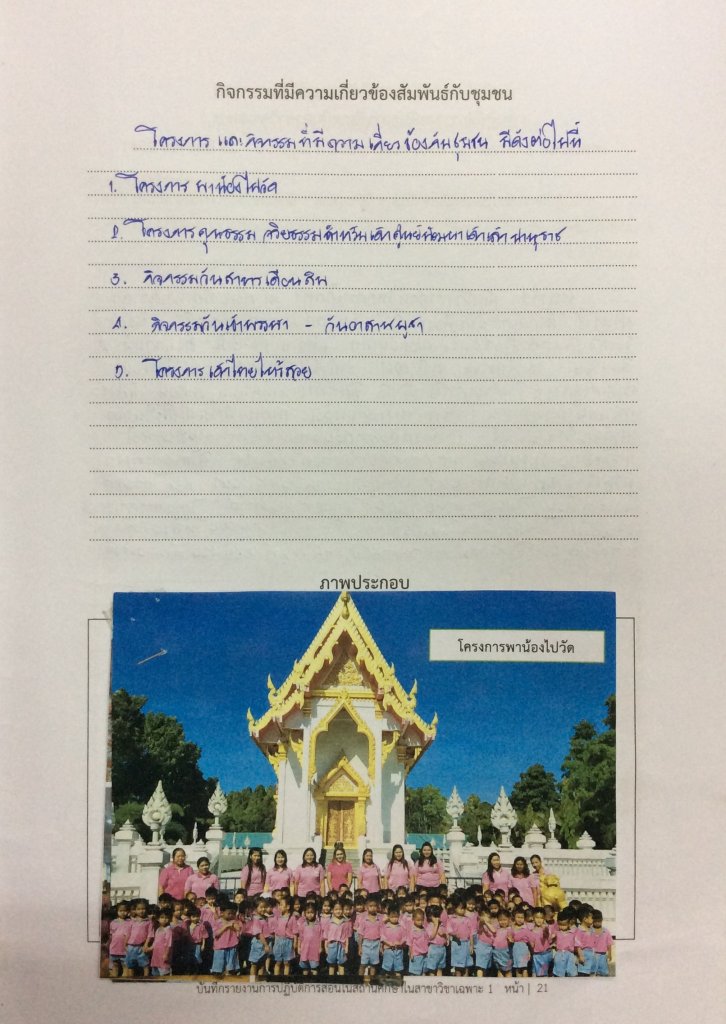 กิจกรรมที่มีความเกี่ยวข้องสัมพันธ์กับชุมชน
โครงการ และกิจกรรมที่มีความเกี่ยวข้องกับชุมชน มีดังต่อไปนี้
1. โครงการ พาน้องไปวัด
2. โครงการคุณธรรม จริยธรรมสำหรับเด็ก
3. กิจกรรมวันสารทเดือนสิบ
4. กิจกรรมวันเข้าพรรษา - วันอาสาฬบูชา
5. โครงการเด็กไทยไหว้สวย
ภาพประกอบ
โครงการพาน้องไปวัด
บันทึกรายงานการปฏิบัติการสอนในสถานศึกษาในสาขาวิชาเฉพาะ 1 หน้า | 21